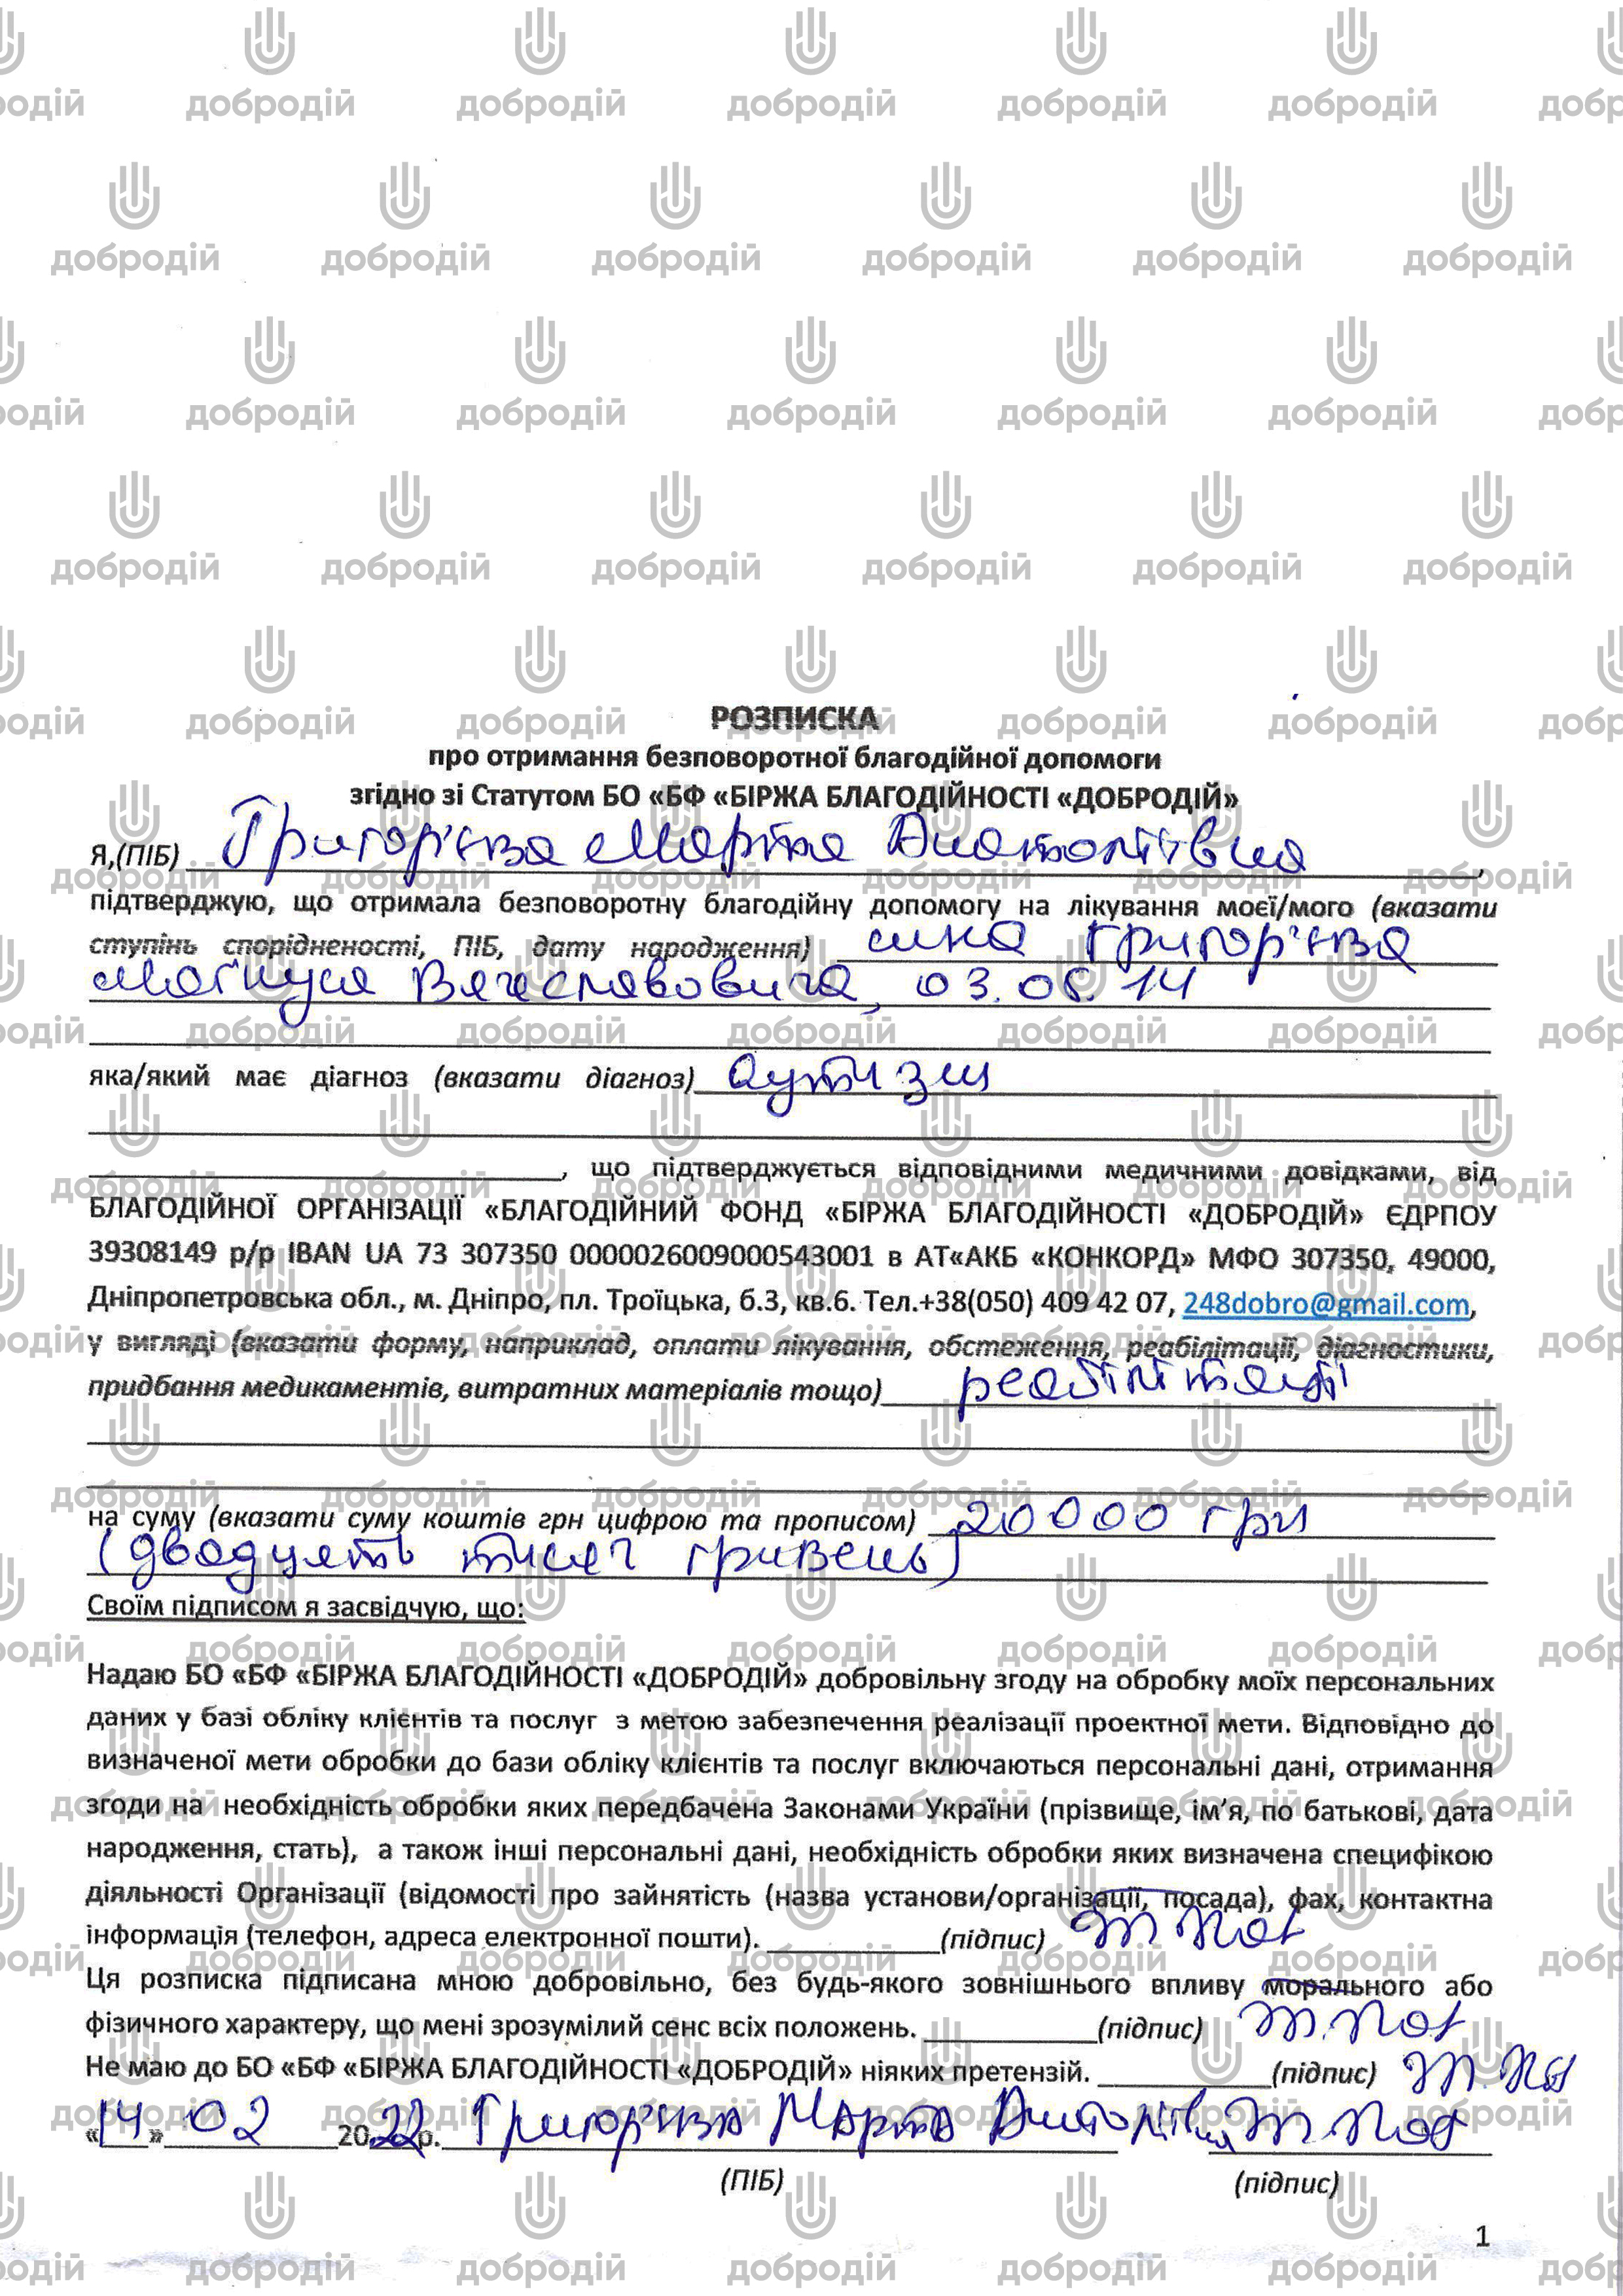 РОЗПИСКА
про отримання безповоротної благодійної допомоги
згідно зі Статутом БО «БФ «БІРЖА БЛАГОДІЙНОСТІ «ДОБРОДІЙ»
Я,(ПІБ) Григор'єва Марта Анатоліївна,
підтверджую, що отримала безповоротну благодійну допомогу на лікування моєї/мого (вказати
ступінь спорідненості, ПІБ, дату народження) сина Григор'єва
Магнуса Вячеславовича, 03.06.14
яка/який має діагноз (вказати діагноз) аутизм
, що підтверджується відповідними медичними довідками, від
БЛАГОДІЙНОЇ ОРГАНІЗАЦІЇ «БЛАГОДІЙНИЙ ФОНД «БІРЖА БЛАГОДІЙНОСТІ «ДОБРОДІЙ» ЄДРПОУ
39308149 р/р IBAN UA 73 307350 0000026009000543001 в АТ«АКБ «КОНКОРД» МФО 307350, 49000,
Дніпропетровська обл., м. Дніпро, пл. Троїцька, б.3, кв.6. Тел.+38(050) 409 42 07, 248dobro@gmail.com,
у вигляді (вказати форму, наприклад, оплати лікування, обстеження, реабілітації, діагностики,
придбання медикаментів, витратних матеріалів тощо) реабілітації
на суму (вказати суму коштів грн цифрою та прописом) 20000 грн
(двадцять тисяч гривень)
Своїм підписом я засвідчую, що:
Надаю БО «БФ «БІРЖА БЛАГОДІЙНОСТІ «ДОБРОДІЙ» добровільну згоду на обробку моїх персональних
даних у базі обліку клієнтів та послуг з метою забезпечення реалізації проектної мети. Відповідно до
визначеної мети обробки до бази обліку клієнтів та послуг включаються персональні дані, отримання
згоди на необхідність обробки яких передбачена Законами України (прізвище, ім’я, по батькові, дата
народження, стать), а також інші персональні дані, необхідність обробки яких визначена специфікою
діяльності Організації (відомості про зайнятість (назва установи/організації, посада), фах, контактна
інформація (телефон, адреса електронної пошти). (підпис)
Ця розписка підписана мною добровільно, без будь-якого зовнішнього впливу морального або
фізичного характеру, що мені зрозумілий сенс всіх положень. (підпис)
Не маю до БО «БФ «БІРЖА БЛАГОДІЙНОСТІ «ДОБРОДІЙ» ніяких претензій. (підпис)
«14» 02 2022р. Григор'єва Марта Анатоліївна
(ПІБ) (підпис)
1
добродій